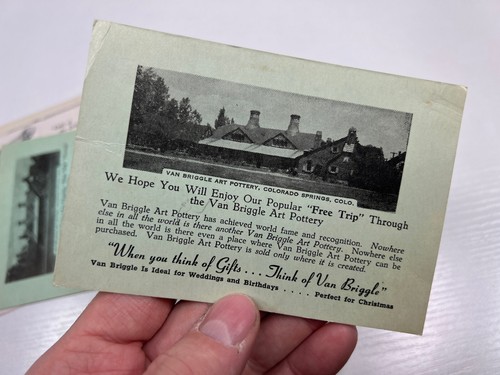 VAN BRIGGLE ART POTTERY, COLORADO SPRINGS, COLO.
We Hope You Will Enjoy Our Popular "Free Trip" Through
the Van Briggle Art Pottery
Van Briggle Art Pottery has achieved world fame and recognition. Nowhere
else in all the world is there another Van Briggle Art Pottery. Nowhere else
in all the world is there even a place where Van Briggle Art Pottery can be
purchased. Van Briggle Art Pottery is sold only where it is created.
"When you think of Gifts . . . Think of Van Briggle"
Van Briggle Is Ideal for Weddings and Birthdays . . . . . Perfect for Christmas